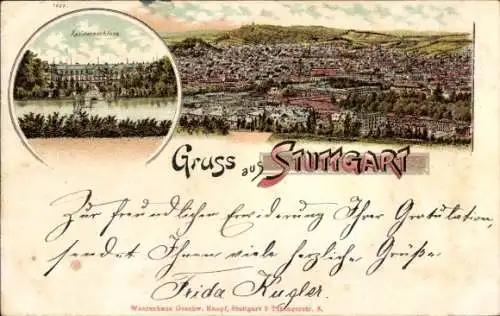 Residenzschloss
Gruss aus STUTTGART
Zur freundlichen Erwiderung Ihrer Gratulation,
sendet Ihnen viele herzliche Grüße
Frida Kugler.
Warenhaus Geschw. Knopf, Stuttgart